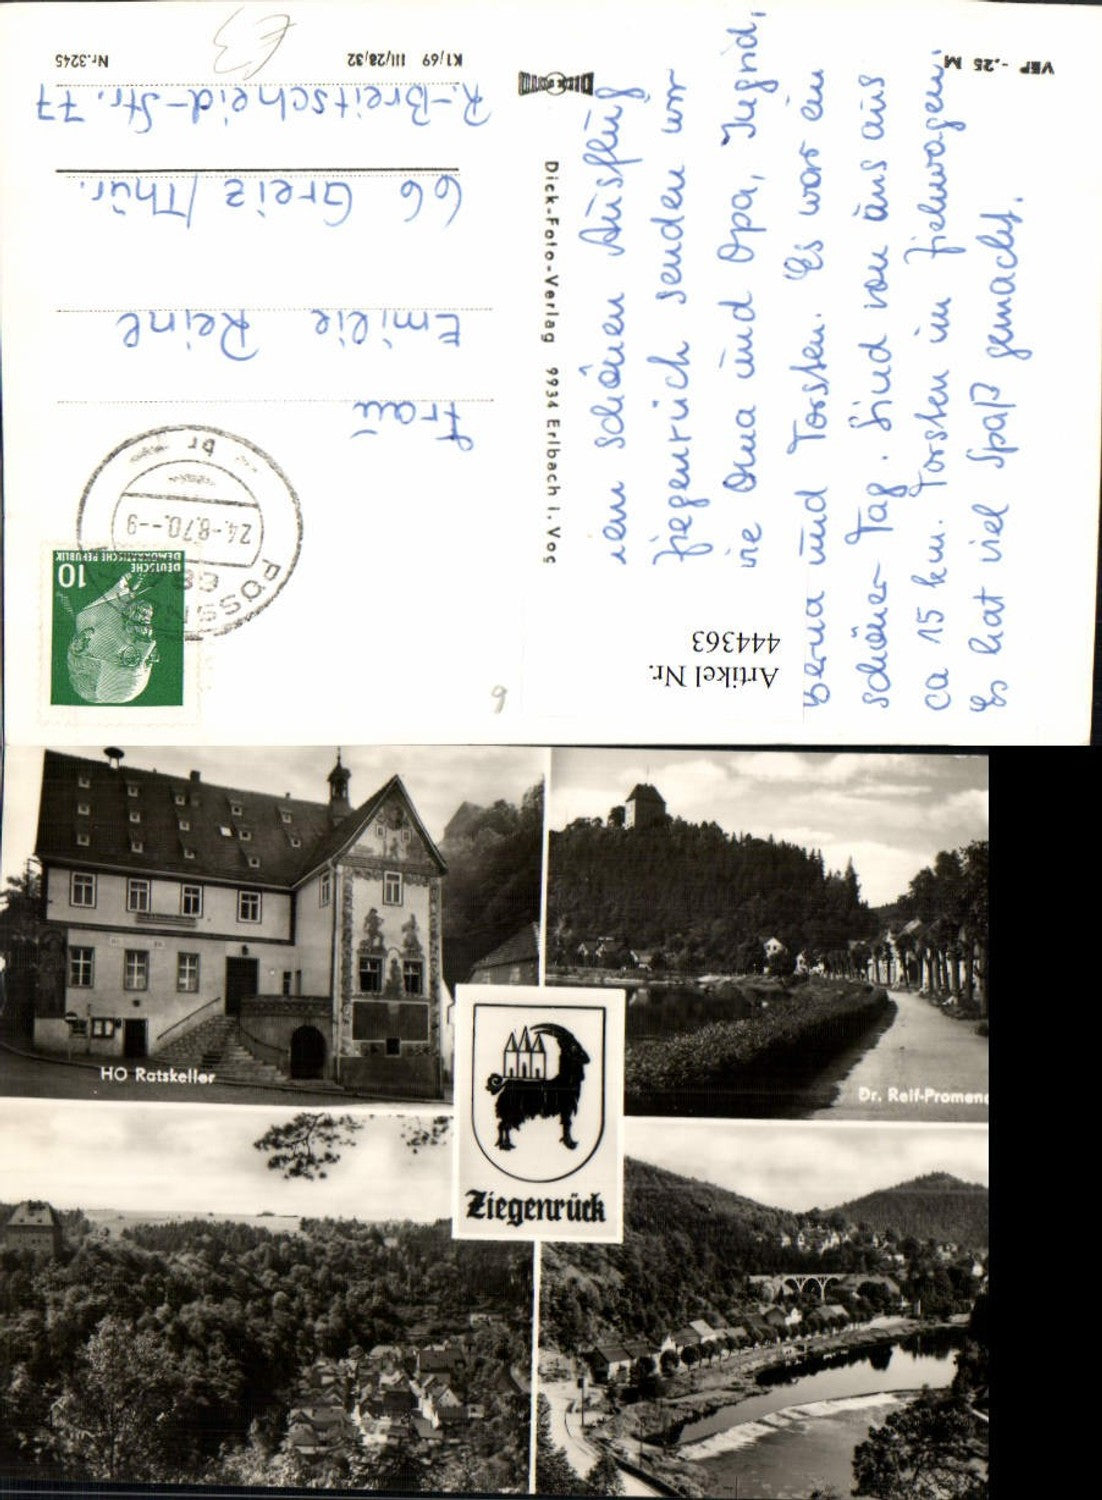 Nr.3245
K1/69 III/28/32
VEP -.25 M
DICK
Dick-Foto-Verlag 9934 Erlbach i. Vog
schönen Ausflug
Ziegenrück senden wir
Oma und Opa, Ingrid,
Berna und Torsten. Es war ein
schöner Tag. Sind von uns aus
ca 15 km. Torsten im Ziehwagen.
Es hat viel Spaß gemacht.
Frau
Emilie Reinl
66 Greiz/Thür.
R.-Breitscheid-Str. 77
24.-8.70.-9
br
DEUTSCHE
DEMOKRATISCHE REPUBLIK
10
Artikel Nr.
444363
HO Ratskeller
Dr. Reif-Promena
Ziegenrück